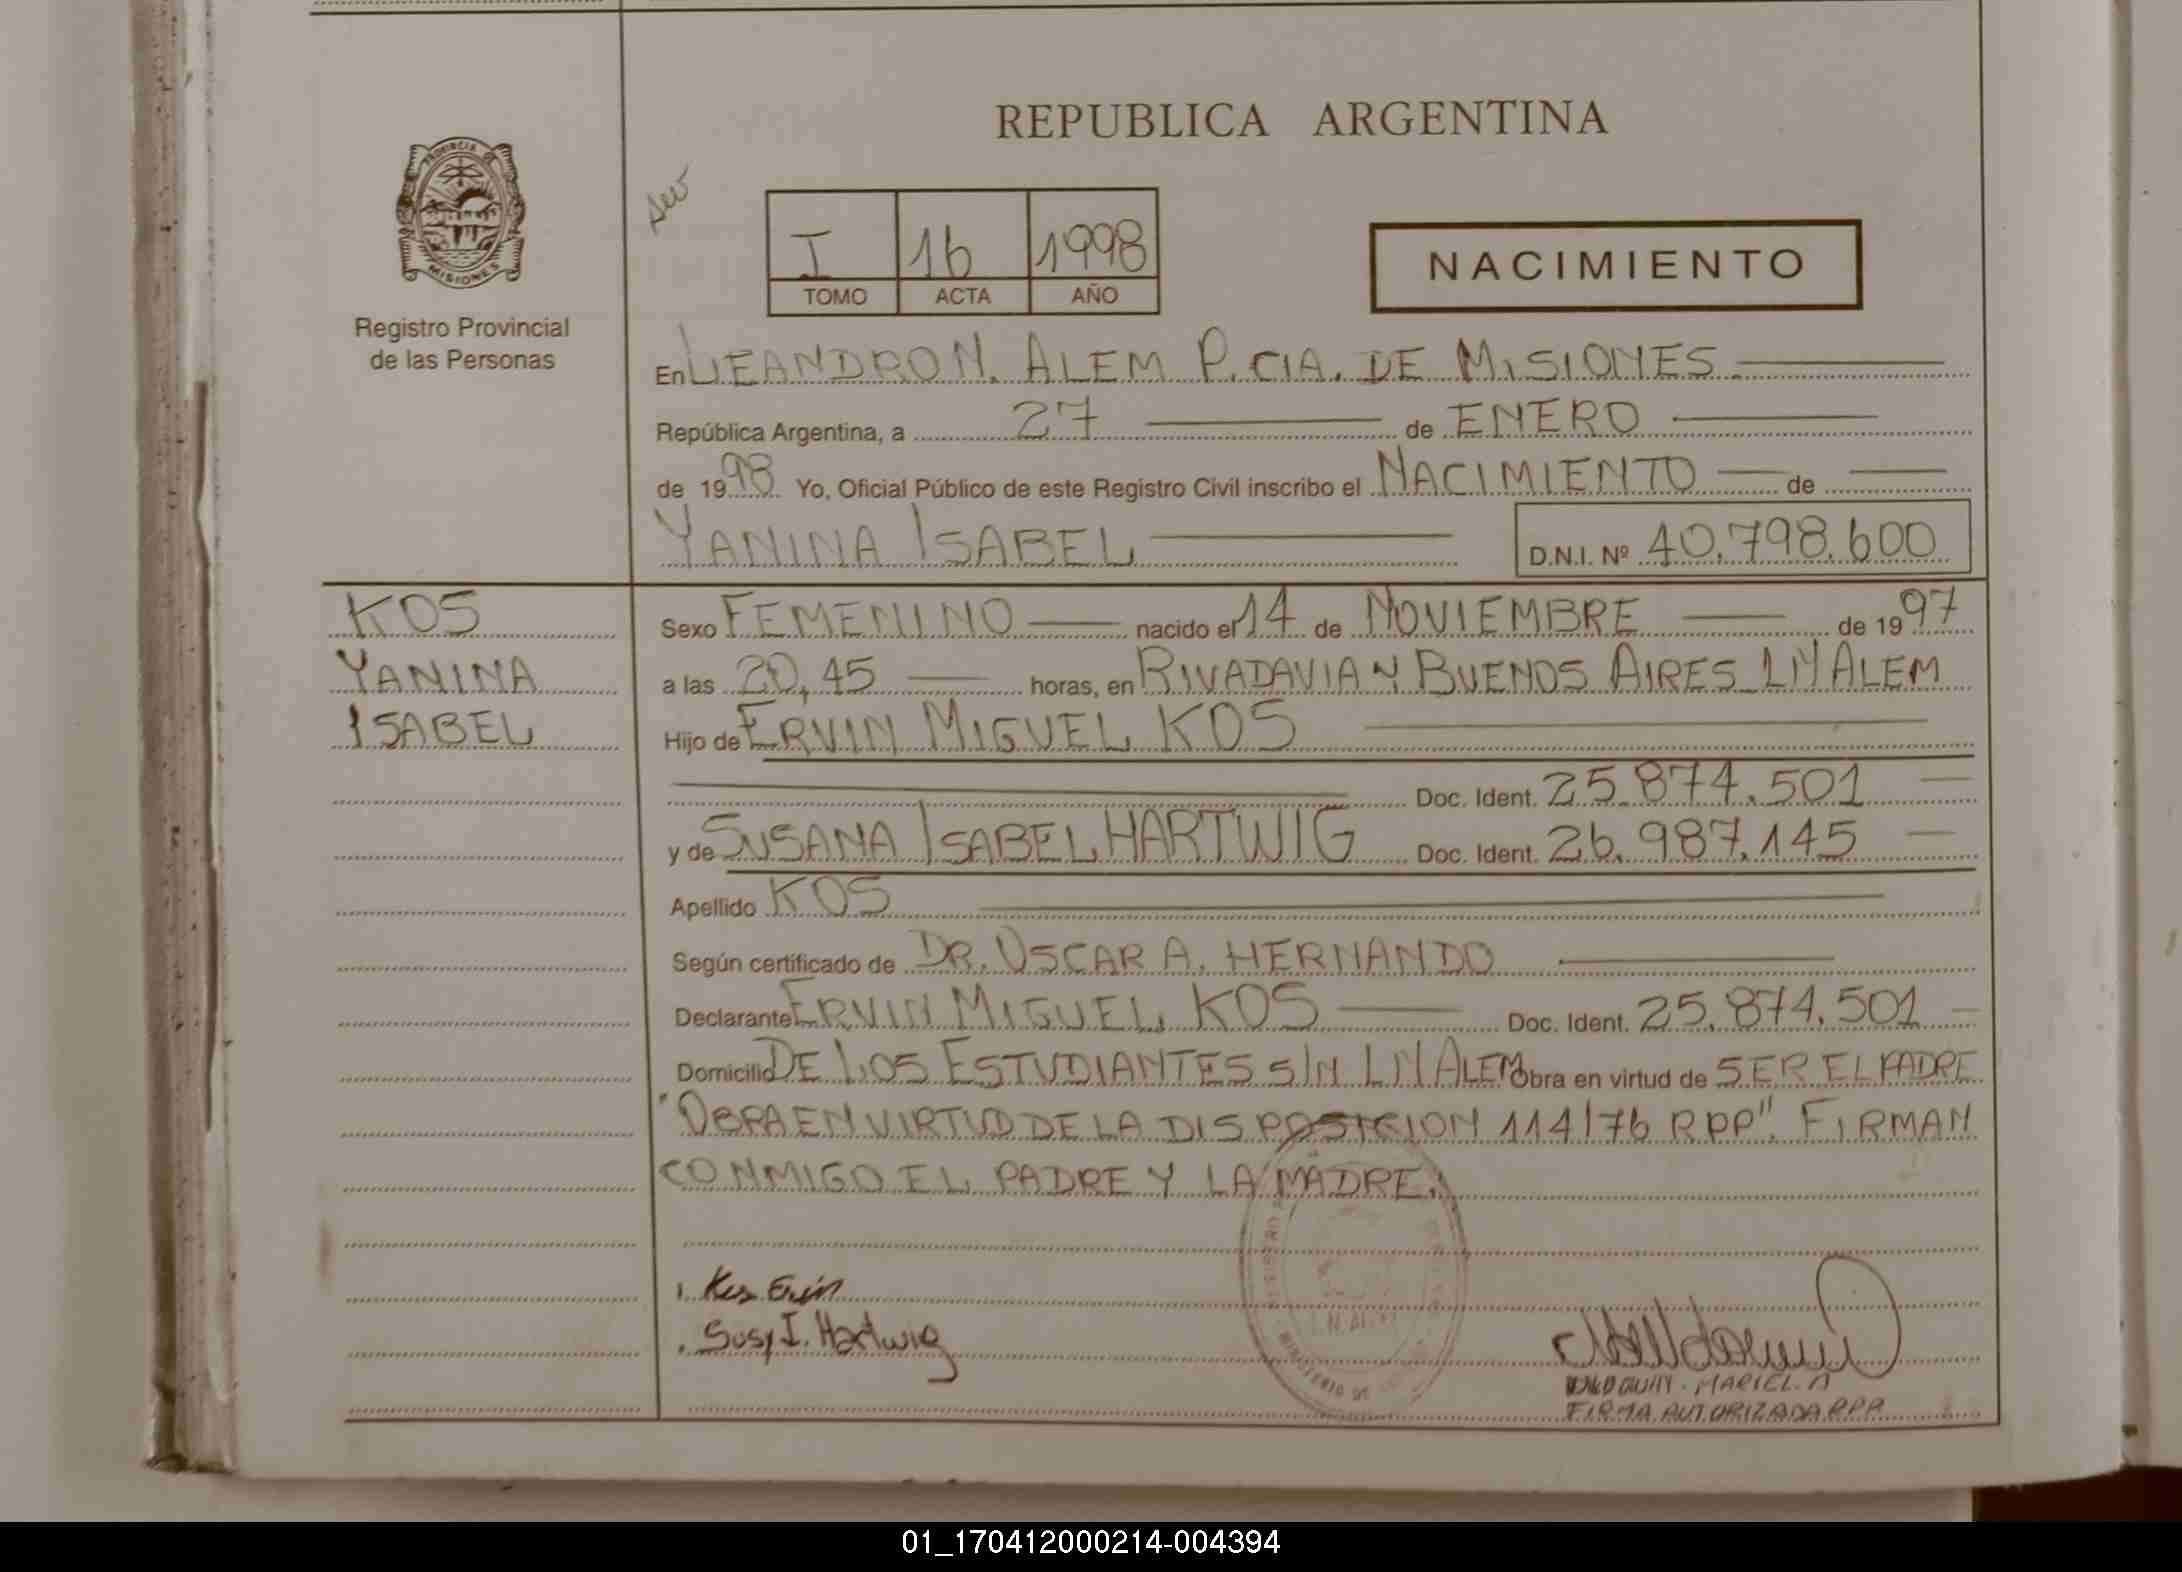 REPUBLICA ARGENTINA
PROVINCIA DE
MISIONES
Registro Provincial
de las Personas
I 16 1998
TOMO ACTA AÑO
NACIMIENTO
En LEANDRO N. ALEM P.CIA. DE MISIONES.
República Argentina, a 27 de ENERO
de 1998 Yo, Oficial Público de este Registro Civil inscribo el NACIMIENTO de
YANINA ISABEL D.N.I. Nº 40.798.600
KOS
YANINA
ISABEL
Sexo FEMENINO nacido el 14 de NOVIEMBRE de 1997
a las 20,45 horas, en RIVADAVIA Y BUENOS AIRES LN ALEM
Hijo de ERVIN MIGUEL KOS
Doc. Ident. 25.874.501
y de SUSANA ISABEL HARTWIG Doc. Ident. 26.987.145
Apellido KOS
Según certificado de DR. OSCAR A. HERNANDO
Declarante ERVIN MIGUEL KOS Doc. Ident. 25.874.501
Domicilio DE LOS ESTUDIANTES S/N LN ALEM Obra en virtud de SER EL PADRE
"OBRA EN VIRTUD DE LA DISPOSICION 114/76 RPP". FIRMAN
CONMIGO EL PADRE Y LA MADRE.
Kos Ervin
Susy I. Hartwig
MARIEL. A
FIRMA AUTORIZADA R.P.P.
01_170412000214-004394